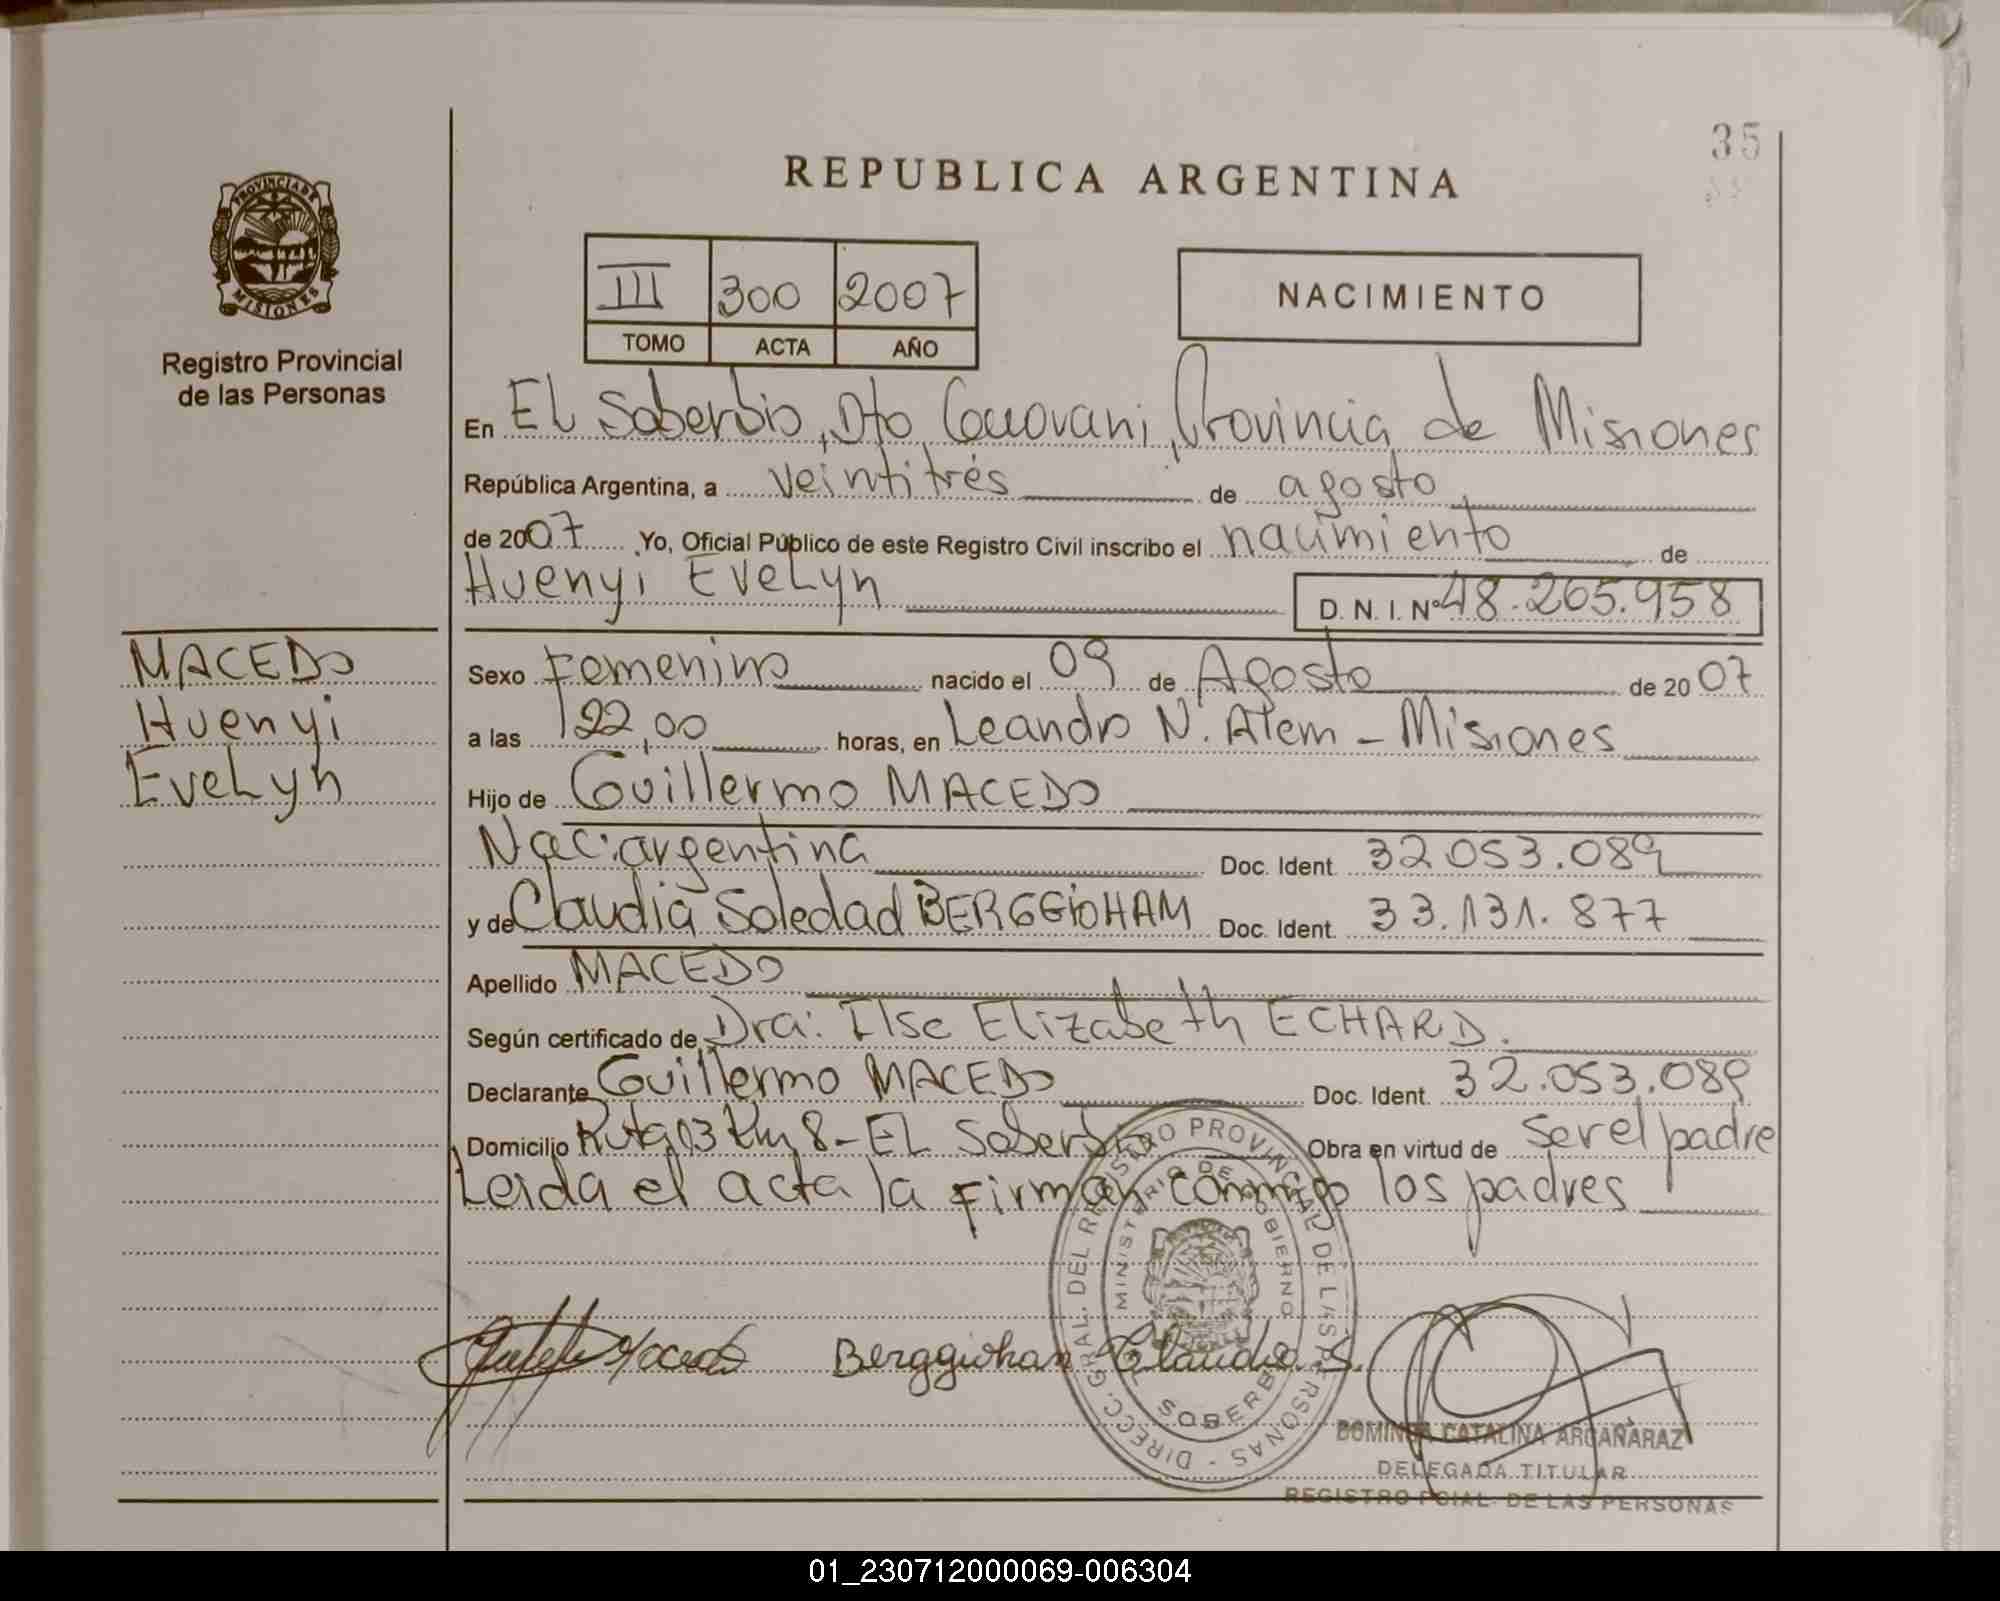 35
REPUBLICA ARGENTINA
PROVINCIA DE
MISIONES
Registro Provincial
de las Personas
III 300 2007
TOMO ACTA AÑO
NACIMIENTO
En EL Soberbio, Dto Guarani, Provincia de Misiones
República Argentina, a veintitrés de agosto
de 2007 Yo, Oficial Público de este Registro Civil inscribo el nacimiento de
Huenyi EveLyn D. N. I. Nº 48.265.958
MACEDO
Huenyi
EveLyn
Sexo Femenino nacido el 09 de Agosto de 2007
a las 22,00 horas, en Leandro N. Alem - Misiones
Hijo de Guillermo MACEDO
Nac: argentina Doc. Ident. 32.053.089
y de Claudia Soledad BERGGIOHAM Doc. Ident. 33.131.877
Apellido MACEDO
Según certificado de Dra: Ilse Elizabeth ECHARD.
Declarante Guillermo MACEDO Doc. Ident. 32.053.089
Domicilio Ruta 13 Km 8 - EL Soberbio Obra en virtud de ser el padre
Leida el acta la firman conmigo los padres
DIRECC. GRAL. DEL REGISTRO PROVINCIAL DE LAS PERSONAS -
MINISTERIO DE GOBIERNO
SOBERBIO
Macedo Berggiohan Claudia S.
DOMINGA CATALINA ARGAÑARAZ
DELEGADA TITULAR
REGISTRO PCIAL. DE LAS PERSONAS
01_230712000069-006304